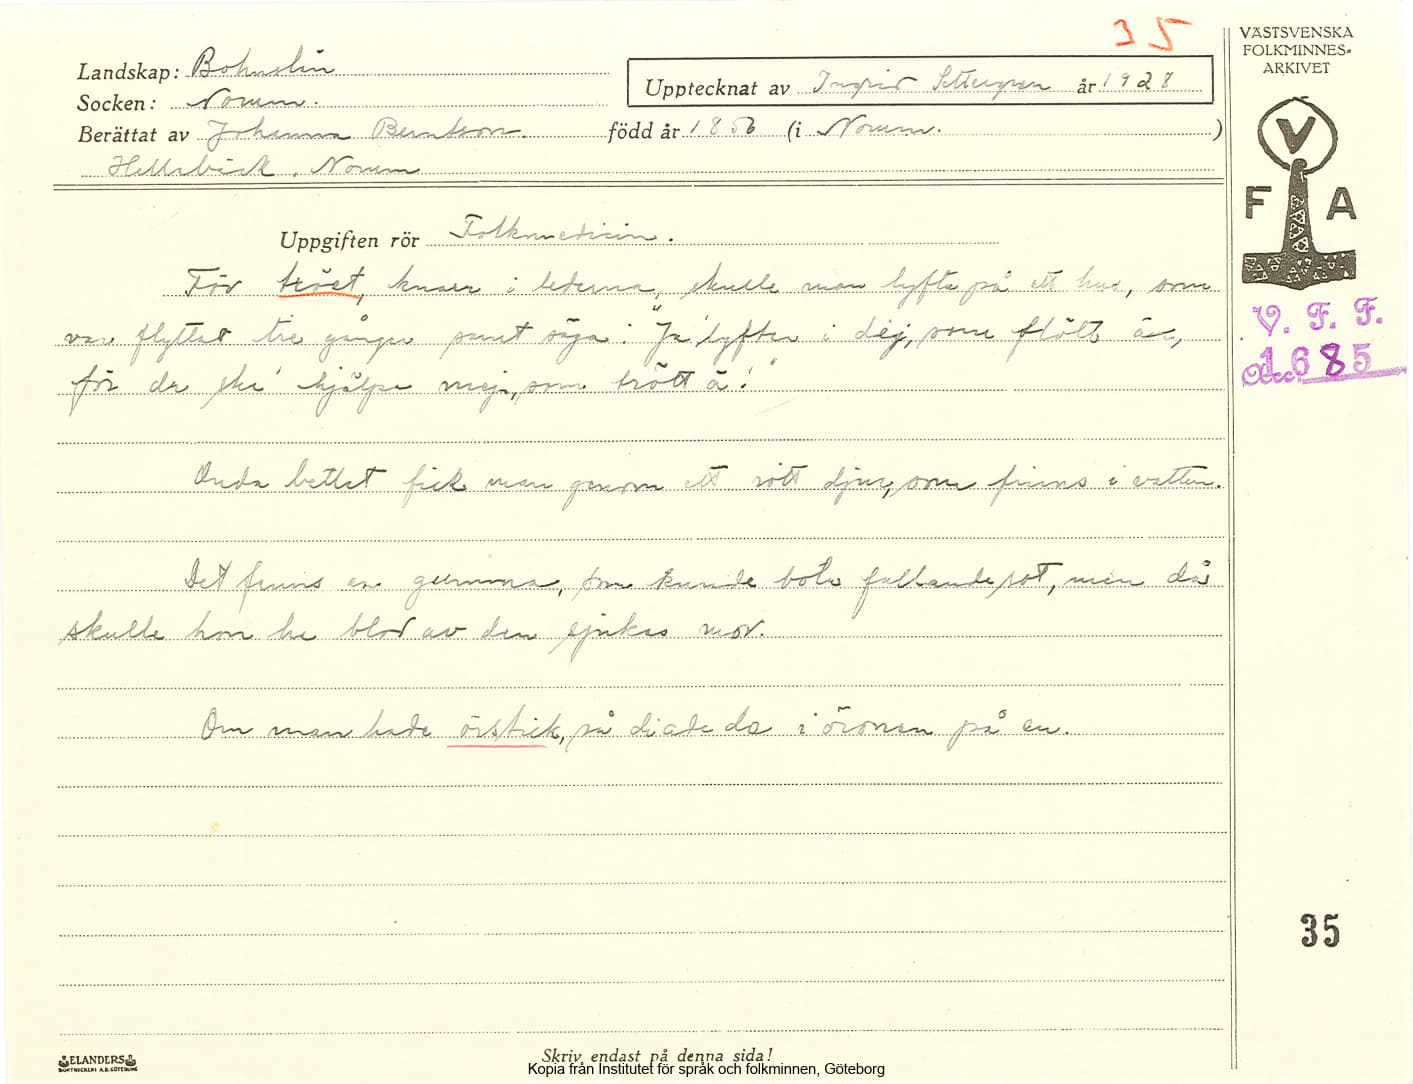 35
VÄSTSVENSKA
FOLKMINNES-
ARKIVET
Landskap: Bohuslän
Upptecknat av Ingrid Settergren år 1928
Socken: Norum.
Berättat av Johanna Berntson. född år 1856 (i Norum.)
Norum
V
F A
Uppgiften rör Folkmedicin.
För tröst, knarr i lederna, skulle man lyfta på ett hus, som
var flyttat tre gånger samt säga: "Ja' lyfter i dej, som flött är,
för du ska' hjälpa mej, som trött ä'."
V. F. F.
Acc. 1685
Onda bettet fick man genom ett rött djur, som finns i vatten.
Det finns en gumma, som kunde bota fallandesot, men då
skulle hon ha blod av den sjukas mor.
Om man hade örstick, så diade de i öronen på en.
35
ELANDERS
BOKTRYCKERI A.B. GÖTEBORG
Skriv endast på denna sida!
Kopia från Institutet för språk och folkminnen, Göteborg